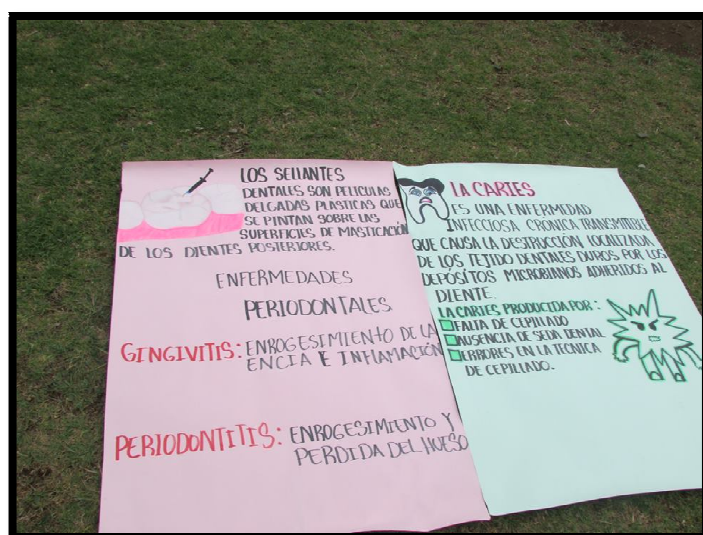 LOS SELLANTES
DENTALES SON PELICULAS
DELGADAS PLASTICAS QUE
SE PINTAN SOBRE LAS
SUPERFICIES DE MASTICACIÓN
DE LOS DIENTES POSTERIORES.
ENFERMEDADES
PERIODONTALES
GINGIVITIS: ENROGESIMIENTO DE LA
ENCIA E INFLAMACIÓN
PERIODONTITIS: ENROGESIMIENTO Y
PERDIDA DEL HUESO
LA CARIES
ES UNA ENFERMEDAD
INFECCIOSA CRONICA TRANSMITIBLE
QUE CAUSA LA DESTRUCCIÓN LOCALIZADA
DE LOS TEJIDO DENTALES DUROS POR LOS
DEPÓSITOS MICROBIANOS ADHERIDOS AL
DIENTE.
LA CARIES PRODUCIDA POR:
FALTA DE CEPILLADO
AUSENCIA DE SEDA DENTAL
ERRORES EN LA TECNICA
DE CEPILLADO.